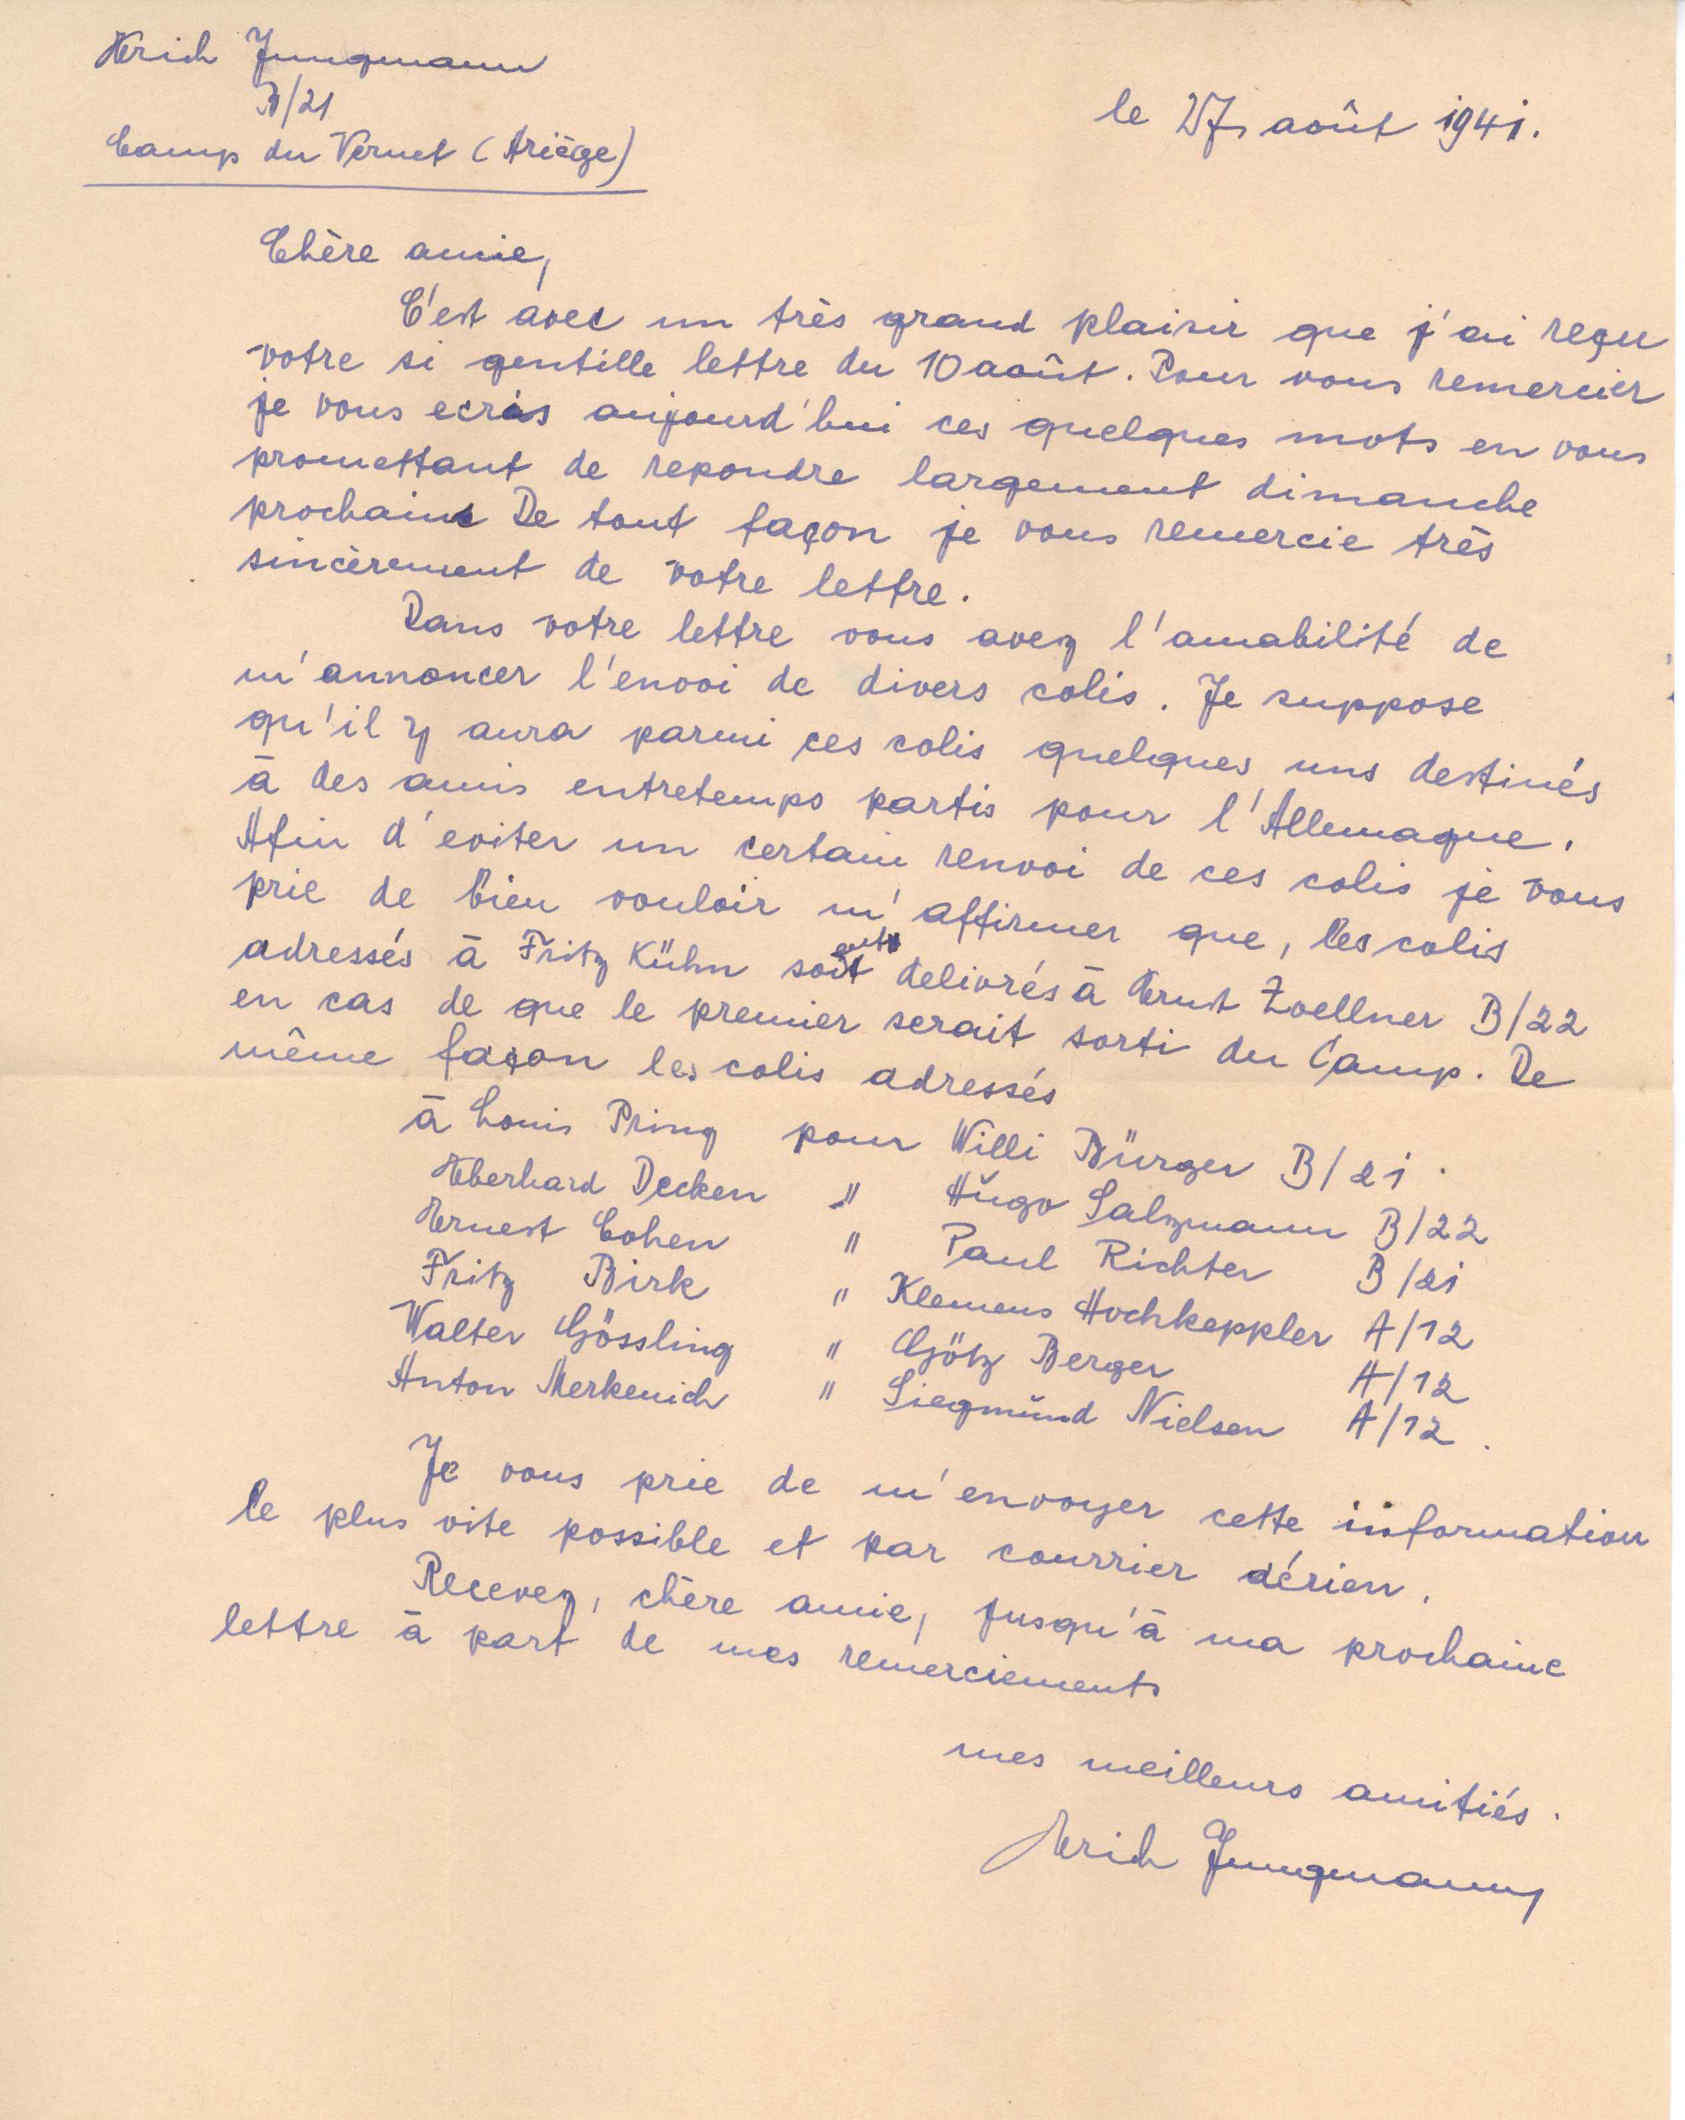 Erich Jungmann
B/21
Camp du Vernet (Ariège)
le 27 août 1941.
Chère amie,
C'est avec un très grand plaisir que j'ai reçu
votre si gentille lettre du 10 août. Pour vous remercier
je vous ecris aujourd'hui ces quelques mots en vous
promettant de repondre largement dimanche
prochain De tout façon je vous remercie très
sincèrement de votre lettre.
Dans votre lettre vous avez l'amabilité de
m'annoncer l'envoi de divers colis. Je suppose
qu'il y aura parmi ces colis quelques uns destinés
à des amis entretemps partis pour l'Allemagne.
Afin d'eviter un certain renvoi de ces colis je vous
prie de bien vouloir m'affirmer que, les colis
adressés à Fritz Kühn soient delivrés à Ernst Zoellner B/22
en cas de que le premier serait sorti du Camp. De
même façon les colis adressés
à Louis Pring pour Willi Bürger B/21.
Eberhard Decken " Hugo Salzmann B/22
Ernest Cohen " Paul Richter B/21
Fritz Birk " Klemens Hochkeppler A/12
Walter Gössling " Götz Berger A/12
Anton Merkenich " Siegmund Nielsen A/12.
Je vous prie de m'envoyer cette information
le plus vite possible et par courrier aérien.
Recevez, chère amie, jusqu'à ma prochaine
lettre à part de mes remerciements
mes meilleurs amitiés.
Erich Jungmann